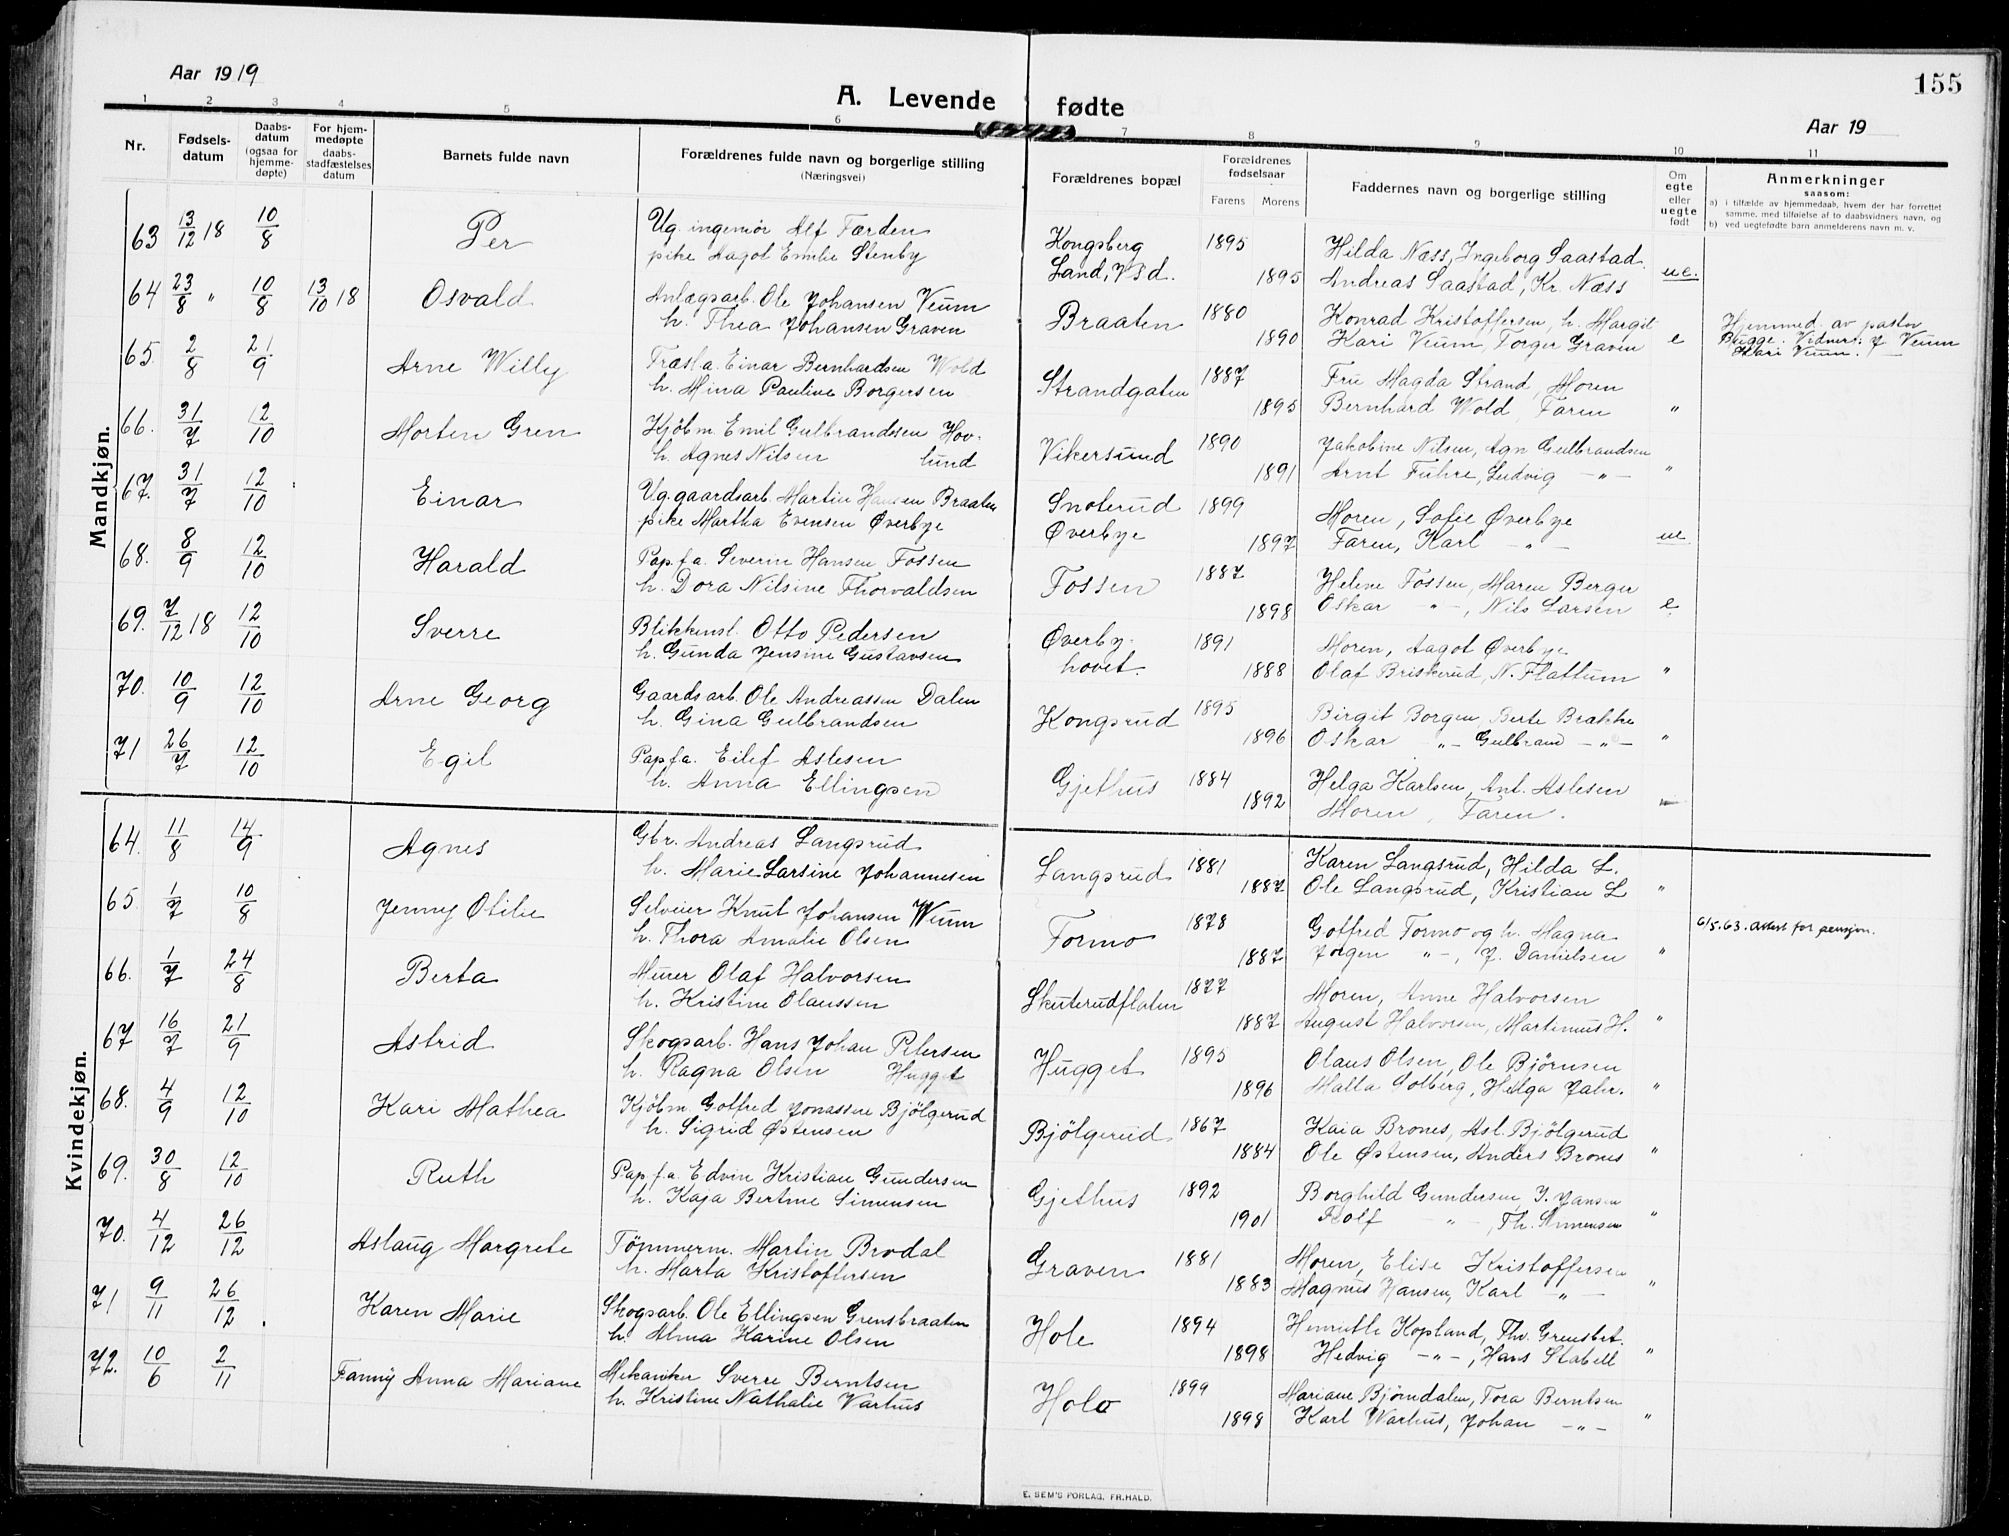 155
Aar 1919
A. Levende fødte
Aar 19
1 2 3 4 5 6 7 8 9 10 11
Nr.
Fødsels-
datum
Daabs-
datum
(ogsaa for
hjemme-
døpte)
For hjem-
medøpte
daabs-
stadfæstelses
datum
Barnets fulde navn
Forældrenes fulde navn og borgerlige stilling
(Næringsvei)
Forældrenes bopæl
Forældrenes
fødselsaar
Farens Morens
Faddernes navn og borgerlige stilling
Om
egte
eller
uegte
født
Anmerkninger
saasom:
a) i tilfælde av hjemmedaab, hvem der har forrettet
samme, med tilføielse af to daabsvidners navn, og
b) ved uegtefødte barn anmelderens navn m. v.
Mandkjøn.
63 13/12 18 10/8 Per Ug. ingeniør Alf Færden Kongsberg 1895 Hilda Næss, Ingeborg Saastad
pike Aagot Emilie Stenby Land, V S d. 1895 Andreas Saastad, Kr. Næss ue.
64 23/8 " 10/8 13/10 18 Osvald Anlægsarb. Ole Johansen Veum Braaten 1880 Konrad Kristoffersen, h. Margit Hjemmed. av pastor
h. Thea Johansen Graven 1890 Kari Veum, Torger Graven e Bugge. Vidner: J Veum
Kari Veum.
65 2/8 21/9 Arne Willy Træsl.a. Einar Bernhardsen Wold Strandgaten 1887 Fru Magda Strand, Moren
h. Mina Pauline Borgersen 1895 Bernhard Wold, Faren "
66. 31/7 12/10 Morten Gren Kjöbm. Emil Gulbrandsen Hov- Vikersund 1890 Jakobine Nilsen, Agn Gulbrandsen
h. Agnes Nilsen lund 1891 Arnt Fuhre, Ludvig -"- "
67. 31/7 12/10 Einar Ug. gaardsarb. Martin Hansen Braaten Snoterud 1899 Moren, Sofie Øverbye
pike Martha Evensen Øverbye Øverbye 1897 Faren, Karl -"- ue.
68. 8/9 12/10 Harald Pap.f.a. Severin Hansen Fossen Fossen 1887 Helene Fossen, Maren Berger
h. Dora Nilsine Thorvaldsen 1898 Oskar -"-, Nils Larsen e.
69. 7/12 18 12/10 Sverre Blikkensl. Otto Pedersen Øverby- 1891 Moren, Aagot Øverbye
h. Gunda Jensine Gustavsen hovet. 1888 Olaf Briskerud, N. Flattum "
70. 10/9 12/10 Arne Georg Gaardsarb. Ole Andreassen Dalen Kongsrud 1895 Birgit Borgen, Berte Brakke
h. Gina Gulbrandsen 1896 Oskar -"- Gulbrand -"- "
71 26/7 12/10 Egil Papf.a. Eilef Aslesen Gjethus 1884 Helga Karlsen, Ant. Aslesen
h. Anna Ellingsen 1892 Moren, Faren. "
Kvindekjøn.
64. 11/8 14/9 Agnes Gbr. Andreas Langsrud Langsrud 1881 Karen Langsrud, Hilda L.
h. Marie Larsine Johannesen 1887 Ole Langsrud, Kristian L "
65. 1/7 10/8 Jenny Otilie Selveier Knut Johansen Weum Tormo 1878 Gotfred Tormo og h. Magna 6/5.63. attest for pensjon.
h. Thora Amalie Olsen 1887 Jørgen "-, J. Danielsen "
66. 1/7 24/8 Berta Murer Olaf Halvorsen Skuterudflaten 1877 Moren, Anne Halvorsen
h. Kristine Olaussen 1887 August Halvorsen, Martinius H. "
67 16/7 21/9 Astrid Skogsarb. Hans Johan Petersen Hugget 1895 Olaus Olsen, Ole Bjørnsen
h. Ragna Olsen Hugget 1896 Malla Solberg, Helga Jahr. "
68. 4/9 12/10 Kari Mathea Kjöbm. Gotfred Jonassen Bjölgerud Bjölgerud 1867 Kaia Brones, Asl. Bjölgerud
h. Sigrid Østensen 1884 Ole Østensen, Anders Brones "
69. 30/8 12/10 Ruth Pap.f.a. Edvin Kristian Gundersen Gjethus 1892 Borghild Gundersen, J. Jansen
h. Kaja Bertine Simensen 1901 Rolf -"-, Th. Simensen "
70. 4/12 26/12 Aslaug Margrete Tömmerm. Martin Brodal Graven 1881 Moren, Elise Kristoffersen
h. Marta Kristoffersen 1883 Magnus Hansen, Karl -"- "
71 9/11 26/12 Karen Marie Skogsarb. Ole Ellingsen Grensbraaten Hole 1894 Henriette Kopland, Thv. Grensbrt.
h. Alma Karine Olsen 1898 Hedvig -"-, Hans Stabell "
72. 10/6 2/11 Fanny Anna Mariane Mekaniker Sverre Berntsen Holo 1899 Mariane Bjørndalen, Tora Berntsen
h. Kristine Nathalie Varhus 1898 Karl Warhus, Johan -"- "
E. SEM'S FORLAG, FR.HALD.